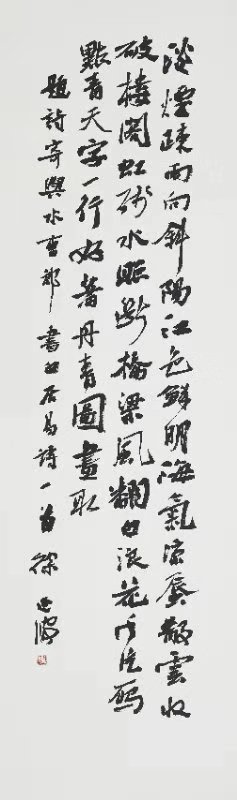 淡煙疎雨向斜陽江色鮮明海氣涼蜃散雲收
破樓閣虹殘水照斷橋梁風翻白浪花千片雁
點青天字一行好著丹青圖畫取
題詩寄與水曹郎 書白居易詩一首 徐